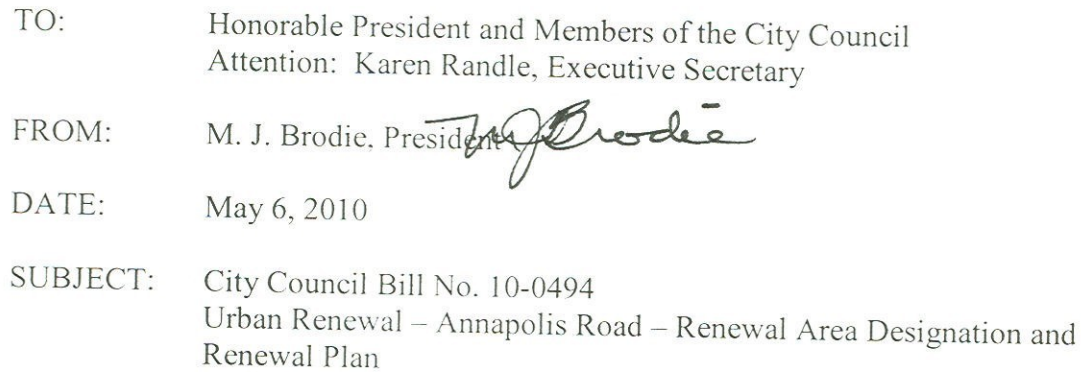 TO: Honorable President and Members of the City Council
Attention: Karen Randle, Executive Secretary
FROM: M. J. Brodie, President MJBrodie
DATE: May 6, 2010
SUBJECT: City Council Bill No. 10-0494
Urban Renewal – Annapolis Road – Renewal Area Designation and
Renewal Plan